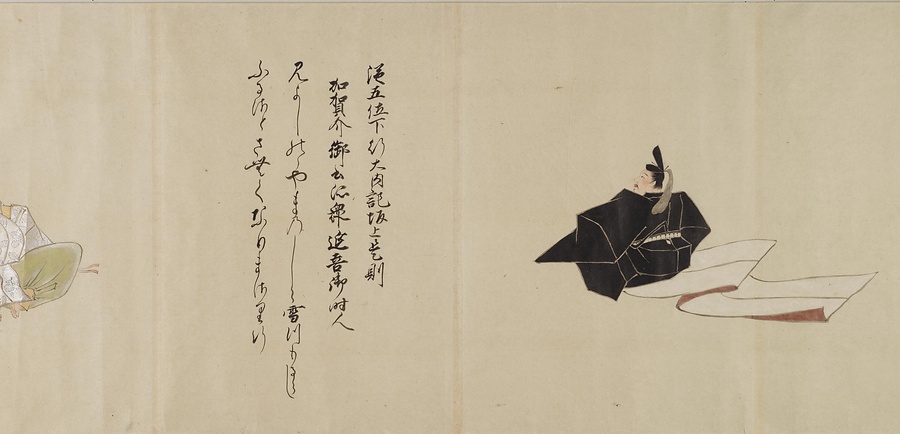 従五位下行大内記坂上是則
加賀介御書所衆延喜御時人
見よしのゝやまのしら雪つもるらし
ふるさとさむくなりまさるなり